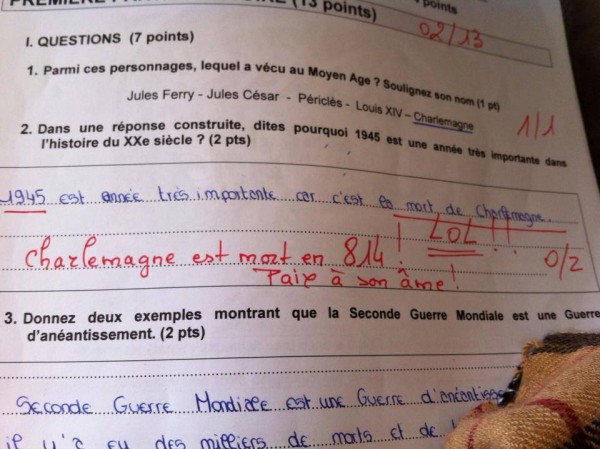 PREMIÈRE (13 points)
points
02/13
I. QUESTIONS (7 points)
1. Parmi ces personnages, lequel a vécu au Moyen Age ? Soulignez son nom (1 pt)
Jules Ferry - Jules César - Périclès - Louis XIV – Charlemagne
1/1
2. Dans une réponse construite, dites pourquoi 1945 est une année très importante dans
l'histoire du XXe siècle ? (2 pts)
1945 est année très importante car c'est la mort de Charlemagne.
! LOL !!
Charlemagne est mort en 814
0/2
Paix à son âme !
3. Donnez deux exemples montrant que la Seconde Guerre Mondiale est une Guerre
d'anéantissement. (2 pts)
Seconde Guerre Mondiale est une Guerre d'anéantisse
il y'a eu des milliers de morts et de